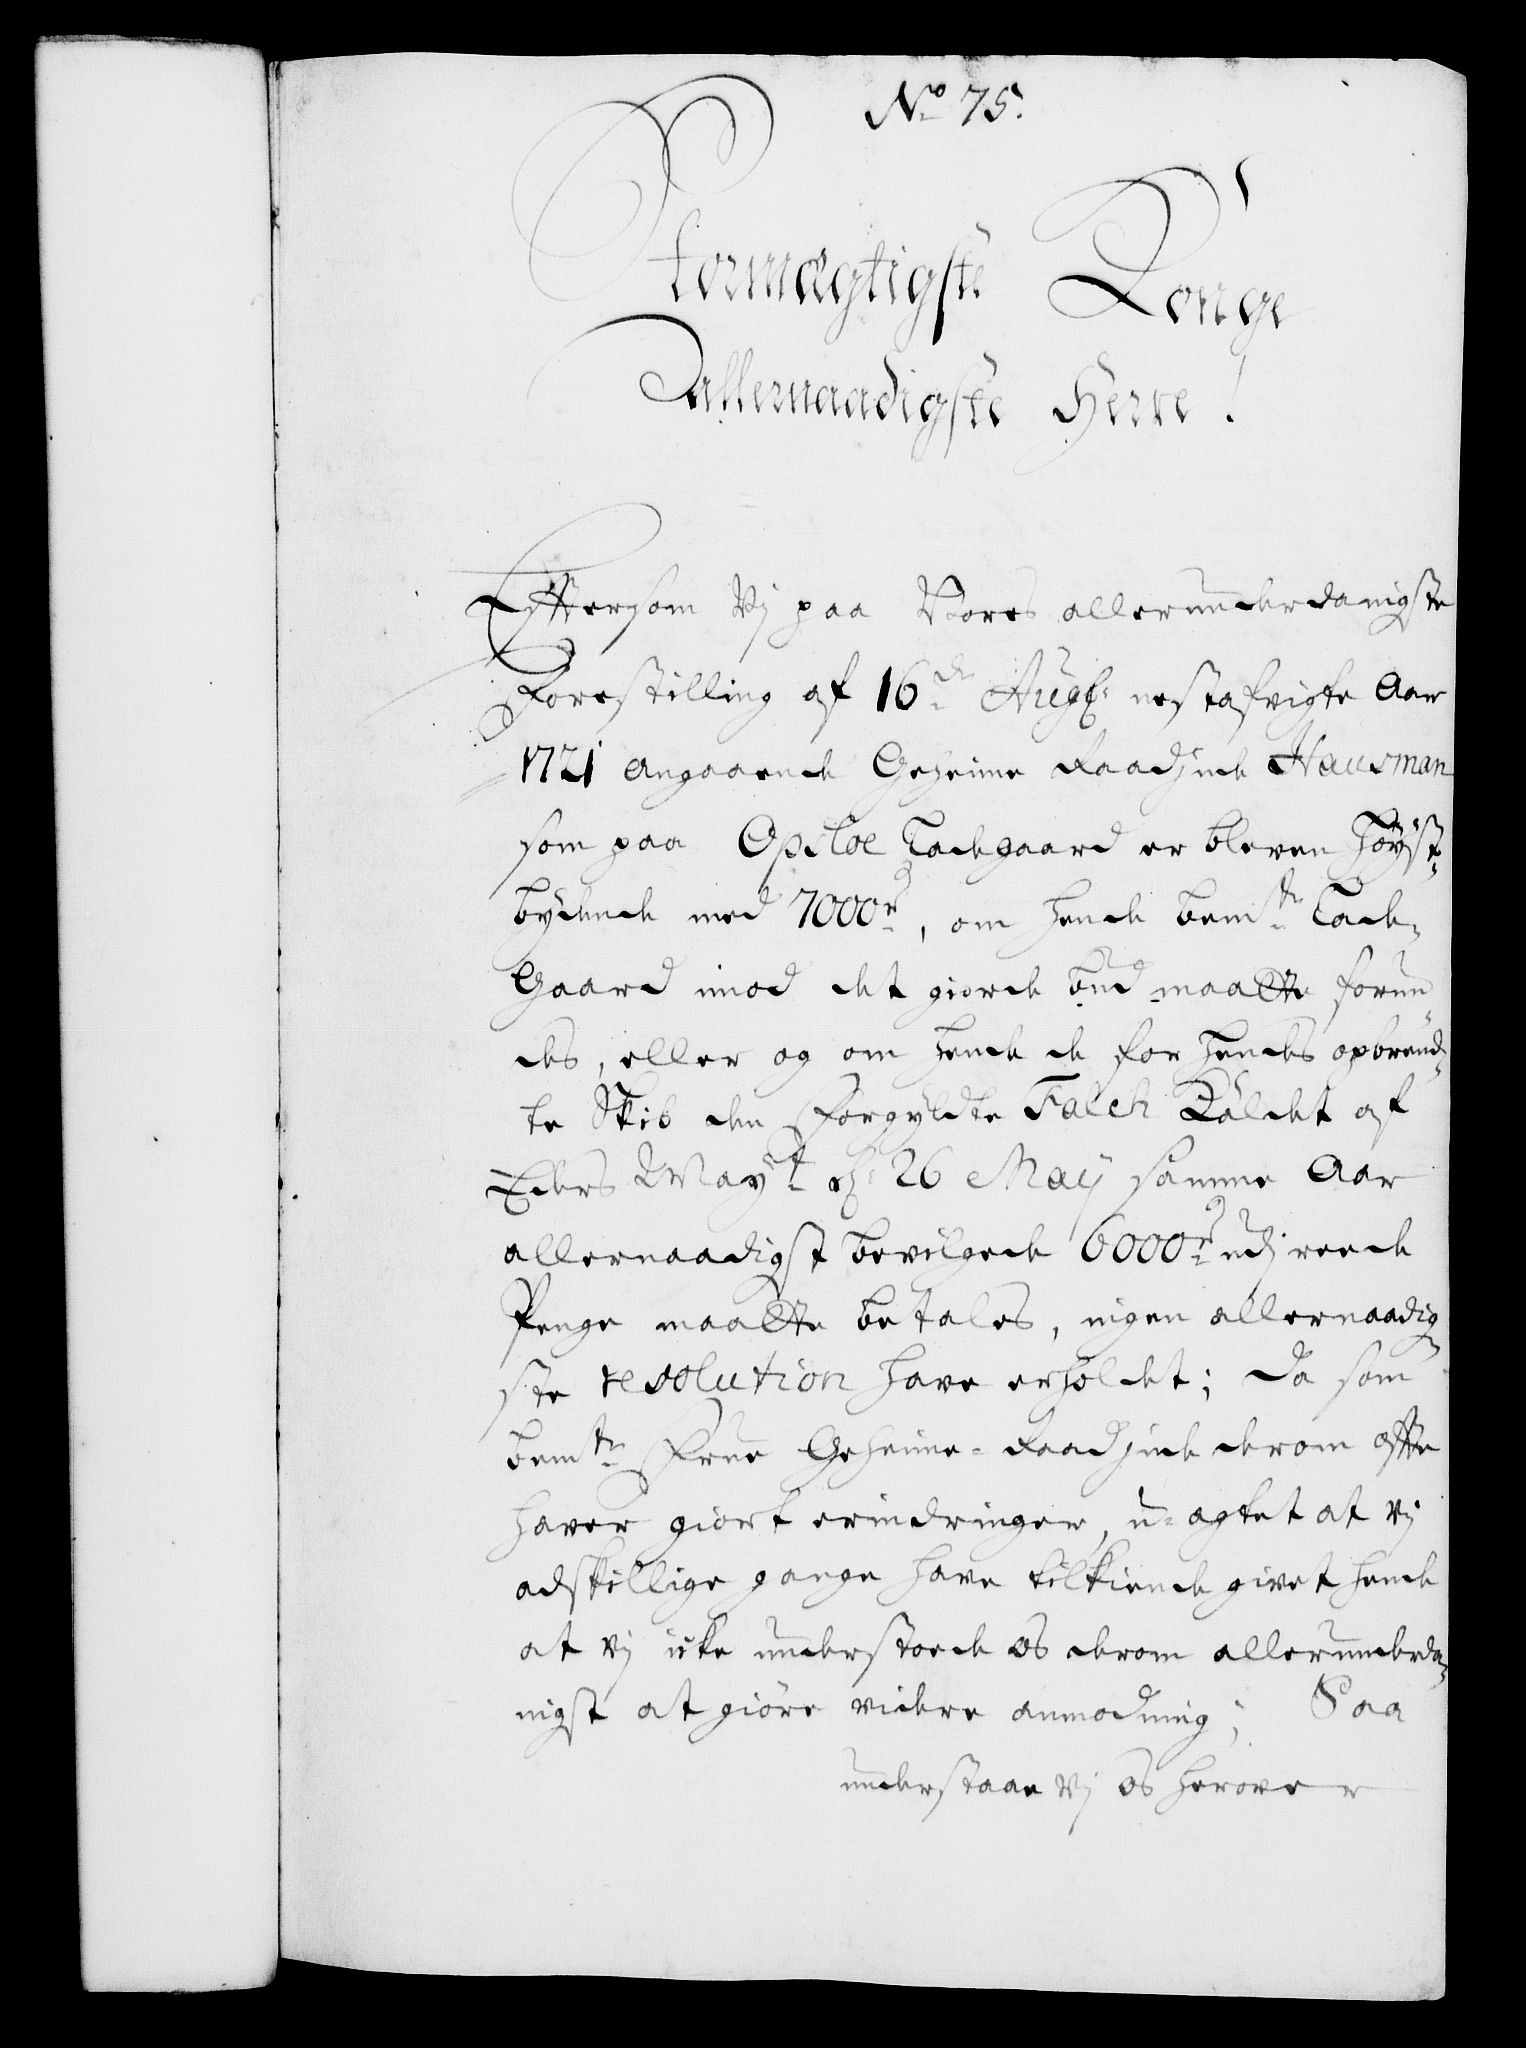 No 75.
Stormægtigste Konge
allernaadigste Herre!
Eftersom Vj paa Vores allerunderdanigste
Forestilling af 16de Augs: nestafvigte Aar
1721 angaaende Geheime Raadjnde Hausman
som paa Opsloe Ladegaard er bleven høyst-
bydende med 7000rd, om hende bemte Lade-
Gaard imod det giorde bud maatte forun
des, eller og om hende de for hendes opbrend-
te Skib den forgyldte Falck kaldet af
Eders Mayt d: 26 Maij samme Aar
allernaadigst bevilgede 6000rd udj reede
Penge maatte betales, ingen allernaadig-
ste resolution have erholdet; da som
bemte Frue Geheime-Raadjnde derom ofte
haver giort erindringer, u-agtet at vj
adskillige gange have tilkiende givet hende
at vj icke understoede os derom allerunderda-
nigst at giöre videre anmodning; Saa
understaae Vj os herover